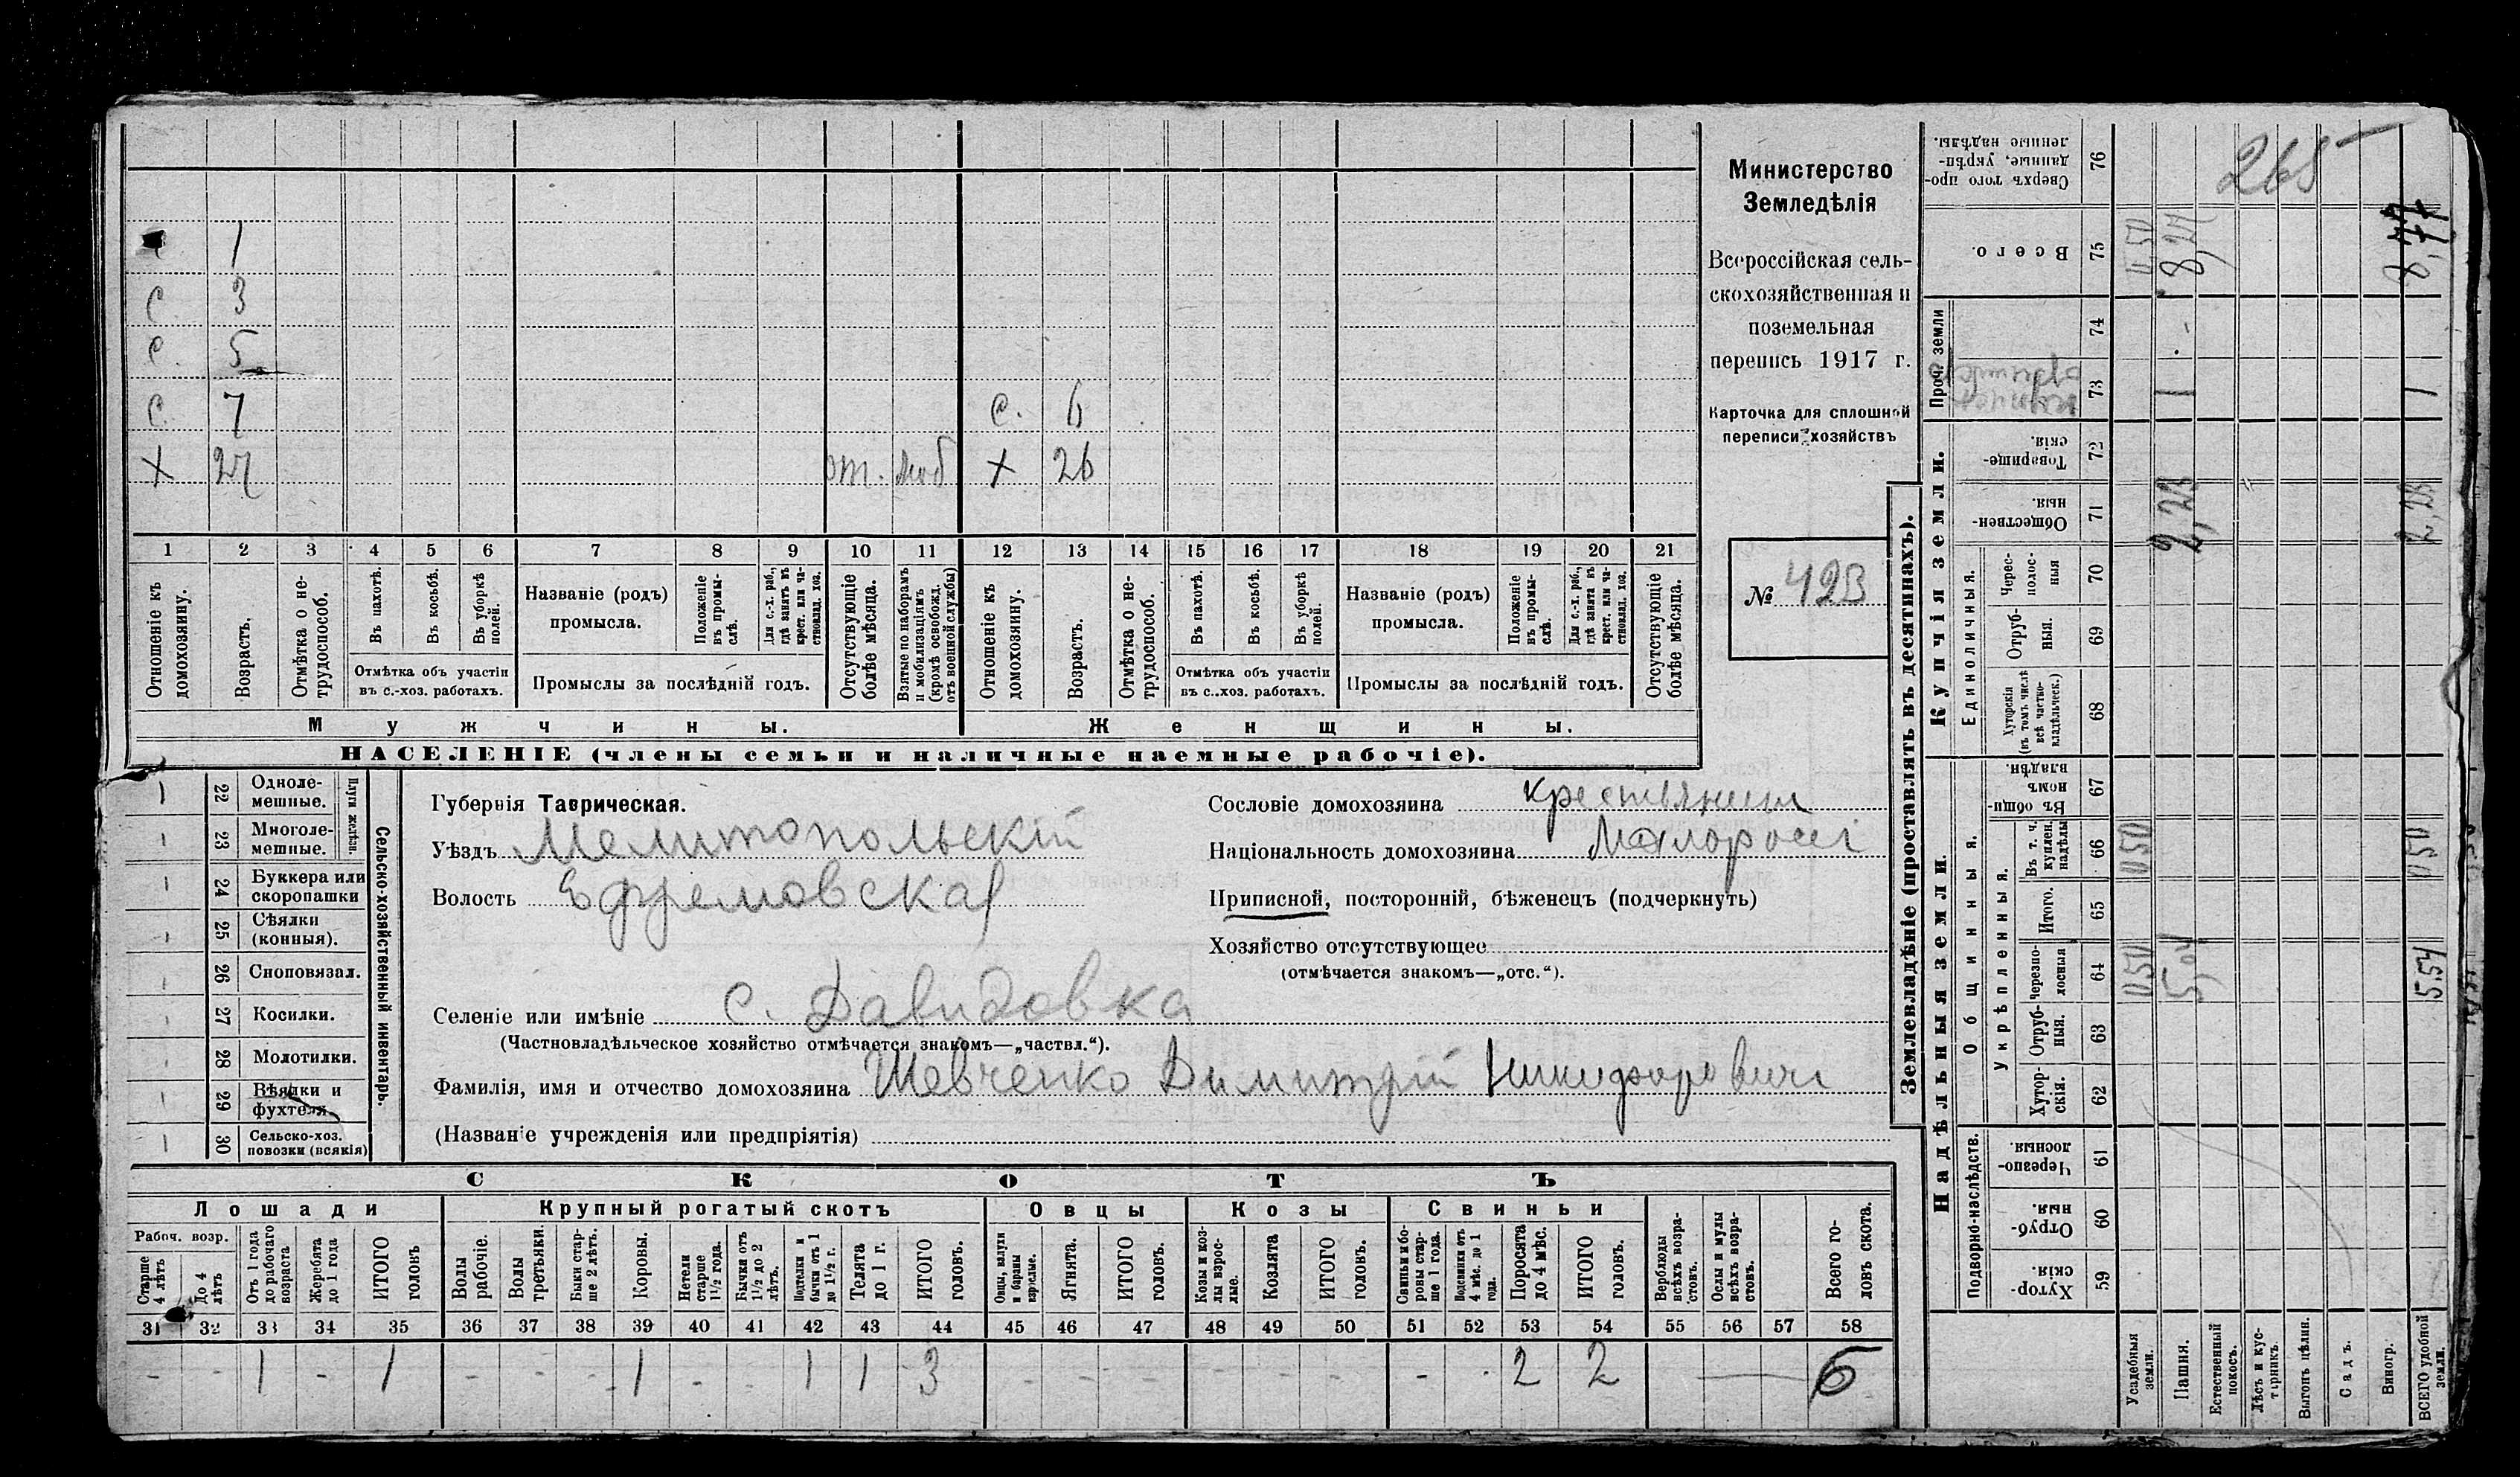 с 1
с 3
с. 5
с. 7 с. 6
х 27 от. моб х 26
1 2 3 4 5 6 7 8 9 10 11 12 13 14 15 16 17 18 19 20 21
Отношеніе къ домохозяину.
Возрасть.
Отмѣтка о не-трудоспособ.
Въ пахотѣ.
Въ косьбѣ.
Въ уборкѣ полей.
Отмѣтка объ участіи
въ с.-хоз. работахъ.
Названіе (родъ)
промысла.
Положеніе въ промы-слѣ.
Для с.-х. раб., гдѣ занятъ въ крест. или ча-стновлад. хоз.
Промыслы за послѣдній годъ.
Отсутствующіе болѣе мѣсяца.
Взятые по наборамъ и мобилизаціямъ (кромѣ освобожд. отъ военной службы)
Отношеніе къ домохозяину.
Возрастъ.
Отмѣтка о не-трудоспособ.
Въ пахотѣ.
Въ косьбѣ.
Въ уборкѣ полей.
Отмѣтка объ участіи
въ с..хоз. работахъ.
Названіе (родъ)
промысла.
Положеніе въ промы-слѣ.
Для с.-х. раб., гдѣ занята въ крест. или ча-стновлад. хоз.
Промыслы за послѣдній годъ.
Отсутствующіе болѣе мѣсяца.
Мужчины. Женщины.
НАСЕЛЕНІЕ (члены семьи и наличные наемные рабочіе).
Министерство
Земледѣлія
Всероссійская сель-
скохозяйственная и
поземельная
перепись 1917 г.
Карточка для сплошной
переписи хозяйствъ
№ 423
22 Однолемешные.
23 Многолемешные.
Плуги желѣзн.
24 Буккера или скоропашки
25 Сѣялки (конныя).
26 Сноповязал.
27 Косилки.
28 Молотилки.
29 Вѣялки и фухтеля.
30 Сельско-хоз. повозки (всякія)
Сельско-хозяйственный инвентарь.
Губернія Таврическая.
Уѣздъ Мелитопольскій
Волость Ефремовская
Селеніе или имѣніе с. Давидовка
(Частновладѣльческое хозяйство отмѣчается знакомъ—„частвл.“).
Фамилія, имя и отчество домохозяина Шевченко Димитрій Никифорович
(Названіе учрежденія или предпріятія)
Сословіе домохозяина крестьянин
Національность домохозяина Малоросс
Приписной, посторонній, бѣженецъ (подчеркнуть)
Хозяйство отсутствующее
(отмѣчается знакомъ—„отс.“).
СКОТЪ
Лошади Крупный рогатый скотъ Овцы Козы Свиньи
Рабоч. возр.
Старше 4 лѣтъ
До 4 лѣтъ
Отъ 1 года до рабочаго возраста
Жеребята до 1 года
ИТОГО головъ
Волы рабочіе.
Волы третьяки.
Быки стар-ше 2 лѣтъ.
Коровы.
Нетели старше 1½ года.
Бычки отъ 1½ до 2 лѣтъ.
Подтелки и бычки отъ 1 до 1½ г.
Телята до 1 г.
ИТОГО головъ.
Овцы, валухи и бараны взрослые.
Ягнята.
ИТОГО головъ.
Козы и коз-лы взрос-лые.
Козлята
ИТОГО головъ.
Свиньи и бо-ровы стар-ше 1 года.
Подсвинки отъ 4 мѣс. до 1 года.
Поросята до 4 мѣс.
ИТОГО головъ.
Верблюды всѣхъ возра-стовъ.
Ослы и мулы всѣхъ возра-стовъ.
Всего го-ловъ скота.
31 32 33 34 35 36 37 38 39 40 41 42 43 44 45 46 47 48 49 50 51 52 53 54 55 56 57 58
- - 1 - 1 - - - 1 - - 1 1 3 - - - - - - - - 2 2 — 6
Землевладѣніе (проставлять въ десятинахъ).
265
76 Сверхъ того про-данные, укрѣп-ленные надѣлы.
75 Всего. 0,50 8,27 8,77
Проч. земли
74
73 1 1
Купчія земли.
72 Товарище-скія.
71 Обществен-ныя. 2,23 2,23
Единоличныя.
70 Черес-полос-ныя
69 Отруб-ныя.
68 Хуторскія (въ томъ числѣ всѣ частно-владѣльческ.)
Надѣльныя земли.
Общинныя.
67 Въ общи-номъ владѣн.
Укрѣпленныя.
66 Въ т. ч. куплен. надѣлы 0,50 0,50
65 Итого.
64 Черезпо-лосныя 0,50 5,04 5,54
63 Отруб-ныя.
62 Хутор-скія.
Подворно-наслѣдств.
61 Черезпо-лосныя
60 Отруб-ныя.
59 Хутор-скія.
Усадебныя земли.
Пашня.
Естественный покосъ.
Лѣсъ и кус-тарникъ.
Выгонъ цѣлин.
Садъ.
Виногр.
ВСЕГО удобной земли.